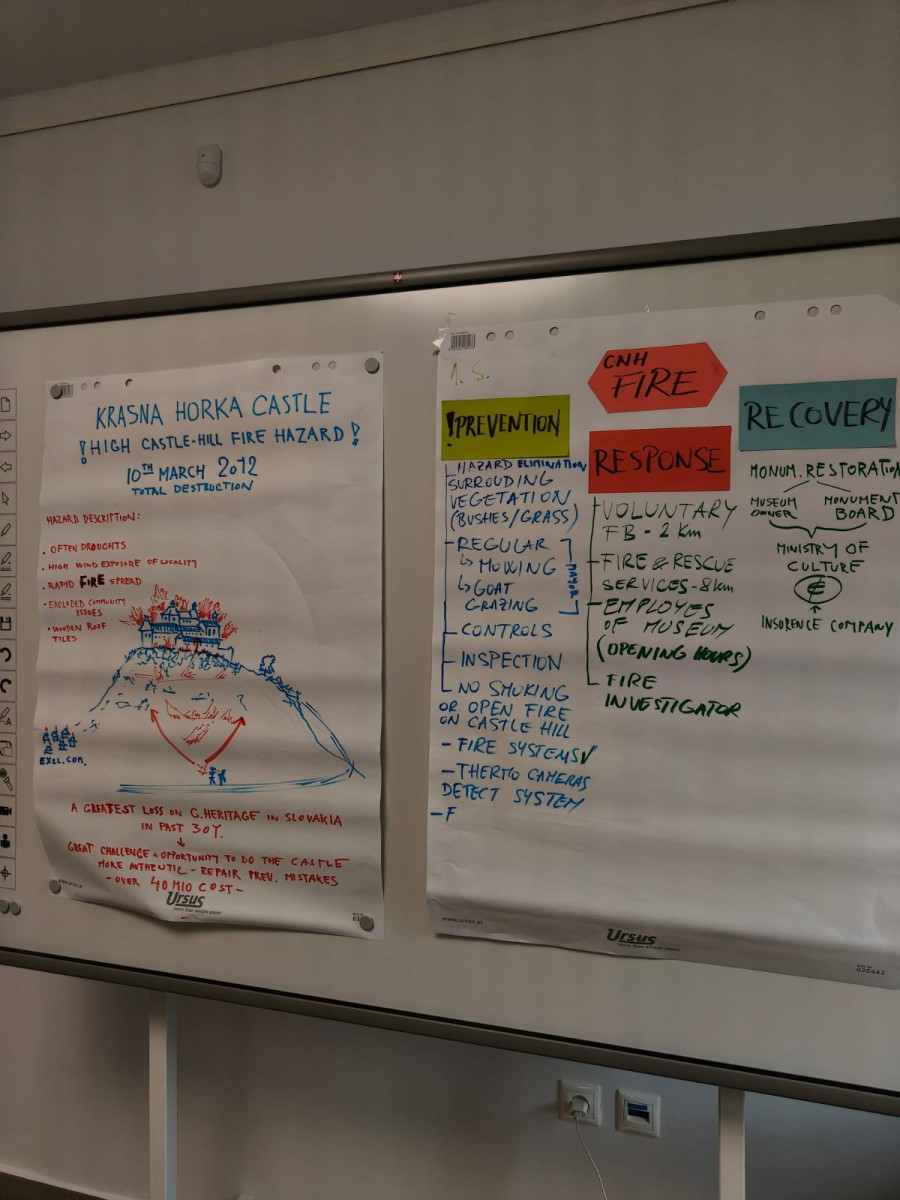 KRASNA HORKA CASTLE
! HIGH CASTLE-HILL FIRE HAZARD !
10TH MARCH 2012
TOTAL DESTRUCTION
HAZARD DESCRIPTION:
• OFTEN DROUGHTS
• HIGH WIND EXPOSURE OF LOCALITY
• RAPID FIRE SPREAD
• EXCLUDED COMMUNITY
ISSUES
• WOODEN ROOF
TILES
EXCL.COM.
A GREATEST LOSS ON C.HERITAGE IN SLOVAKIA
IN PAST 30Y.
GREAT CHALLENGE & OPPORTUNITY TO DO THE CASTLE
MORE AUTHENTIC - REPAIR PREV. MISTAKES
- OVER 40 MIO COST -
Ursus
1. S.
CNH
FIRE
! PREVENTION
HAZARD ELIMINATION
SURROUDING
VEGETATION
(BUSHES/GRASS)
- REGULAR
↳ MOWING
↳ GOAT
GRAZING
MAYOR
- CONTROLS
- INSPECTION
- NO SMOKING
OR OPEN FIRE
ON CASTLE HILL
- FIRE SYSTEMS ✓
- THERMO CAMERAS
DETECT SYSTEM
- F
RESPONSE
- VOLUNTARY
FB - 2 Km
- FIRE & RESCUE
SERVICES - 8km
- EMPLOYES
OF MUSEUM
(OPENING HOURS)
- FIRE
INVESTIGATOR
RECOVERY
MONUM. RESTORATION
MUSEUM
OWNER
MONUMENT
BOARD
MINISTRY OF
CULTURE
€
INSURENCE COMPANY
www.ursus.at
Ursus